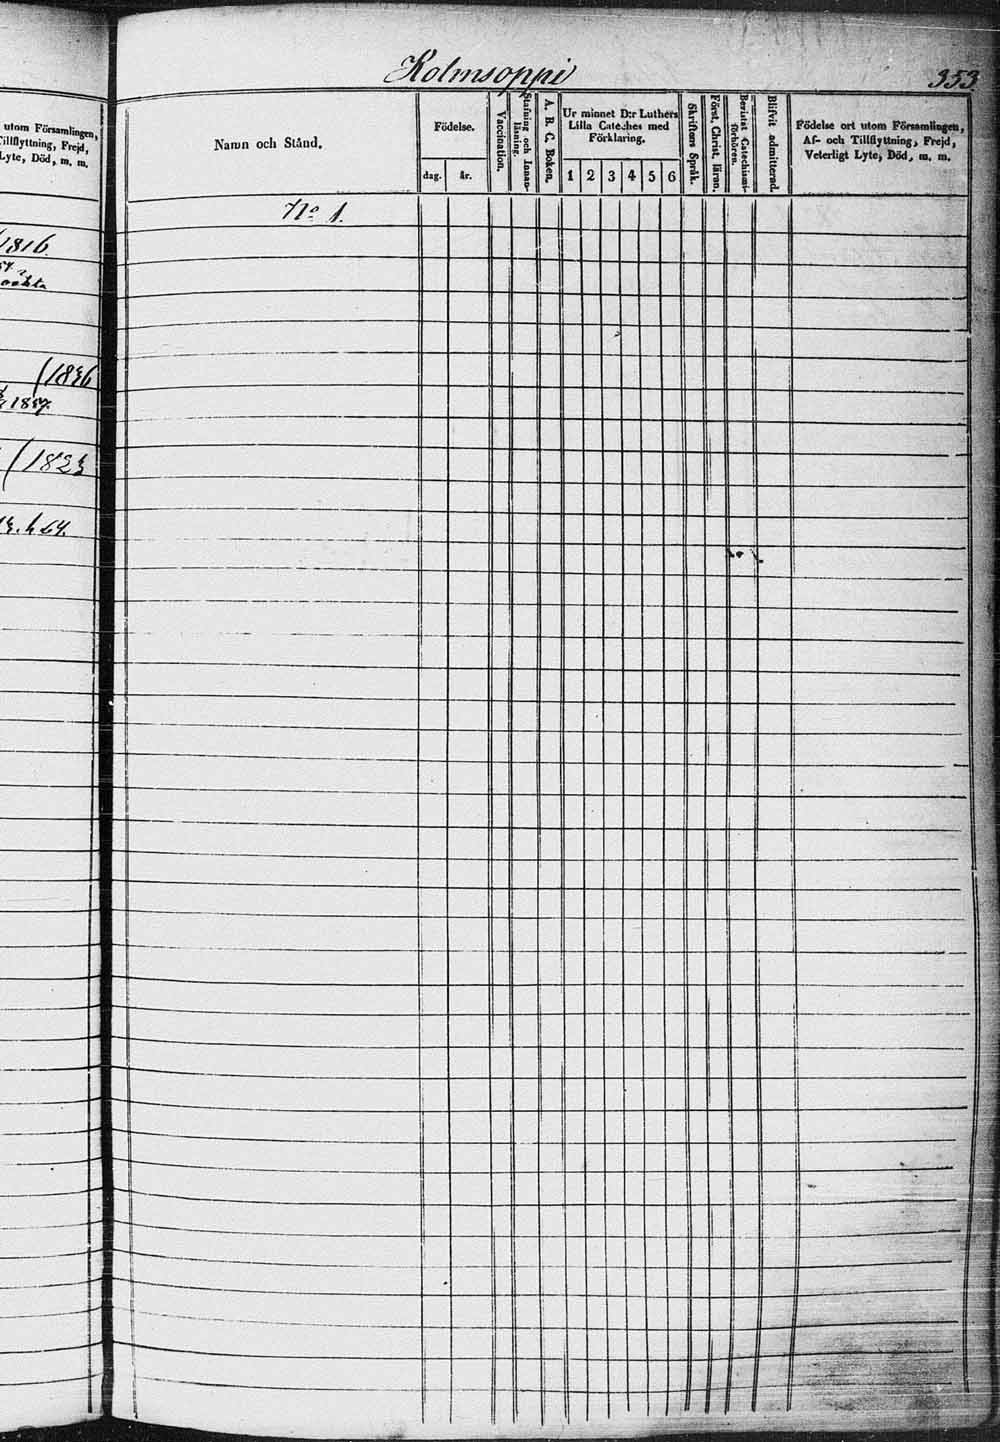 utom Församlingen,
Tillflyttning, Frejd,
Lyte, Död, m. m.
1816.
(1836
1837.
(1823
Kolmsoppi
353.
Namn och Stånd.
Födelse.
dag.
år.
Vaccination.
Stafning och Innan-
läsning.
A. B. C. Boken.
Ur minnet D:r Luthers
Lilla Cateches med
Förklaring.
1 2 3 4 5 6
Skriftens Språk.
Först. Christ. läran.
Bevistat Catechismi-
förhören.
Blifvit admitterad.
Födelse ort utom Församlingen,
Af- och Tillflyttning, Frejd,
Veterligt Lyte, Död, m. m.
No 1.